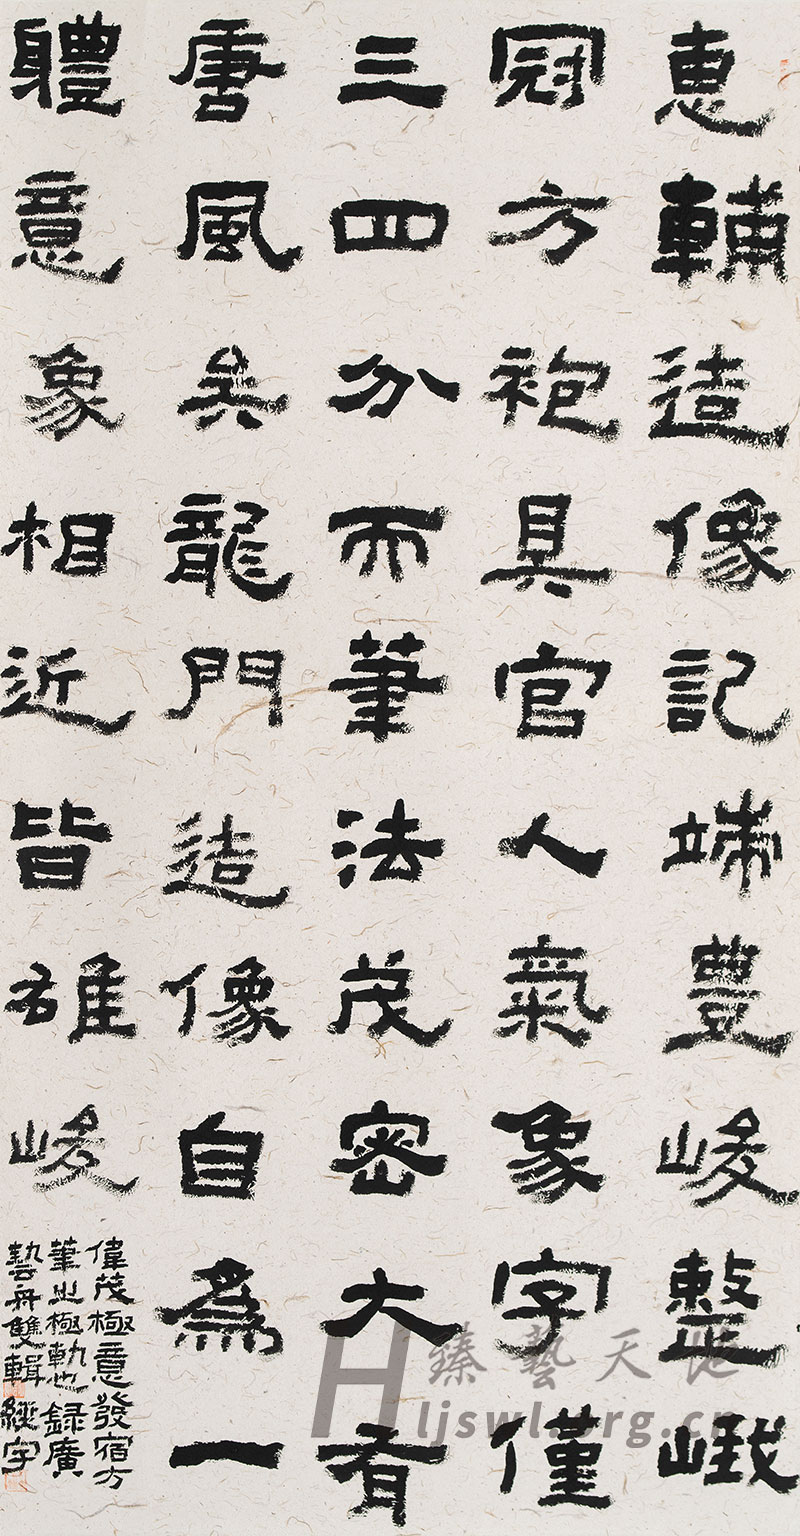 惠輔造像記端豊峻整峨
冠方袍具官人氣象字僅
三四分而筆法茂密大有
唐風矣龍門造像自為一
軆意象相近皆雄峻
偉茂極意發宿方
筆之極軌也錄廣
藝舟雙輯 經字
臻藝天地
Hljswl.org.cn